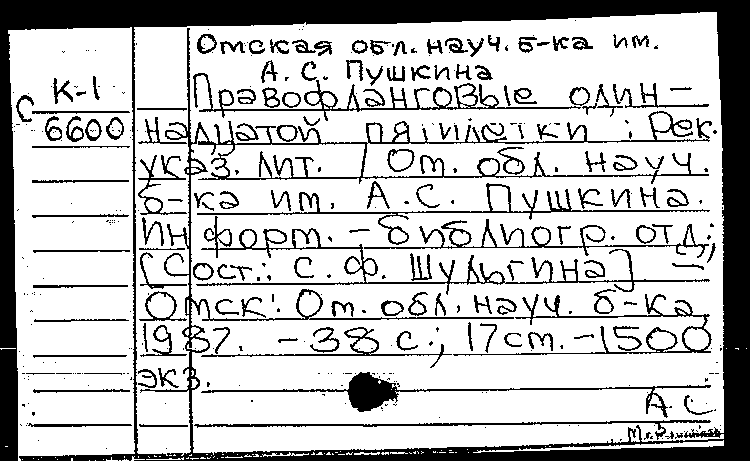 Омская обл. науч. б-ка им.
А. С. Пушкина
К-1
Правофланговые один-
С
6600
надцатой пятилетки : Рек.
указ. лит. / Ом. обл. науч.
б-ка им. А.С. Пушкина.
Информ. - библиогр. отд.;
[Сост.: С. Ф. Шульгина] -
Омск: Ом. обл. науч. б-ка,
1987. - 38 с.; 17 см. - 1500
экз.
АС